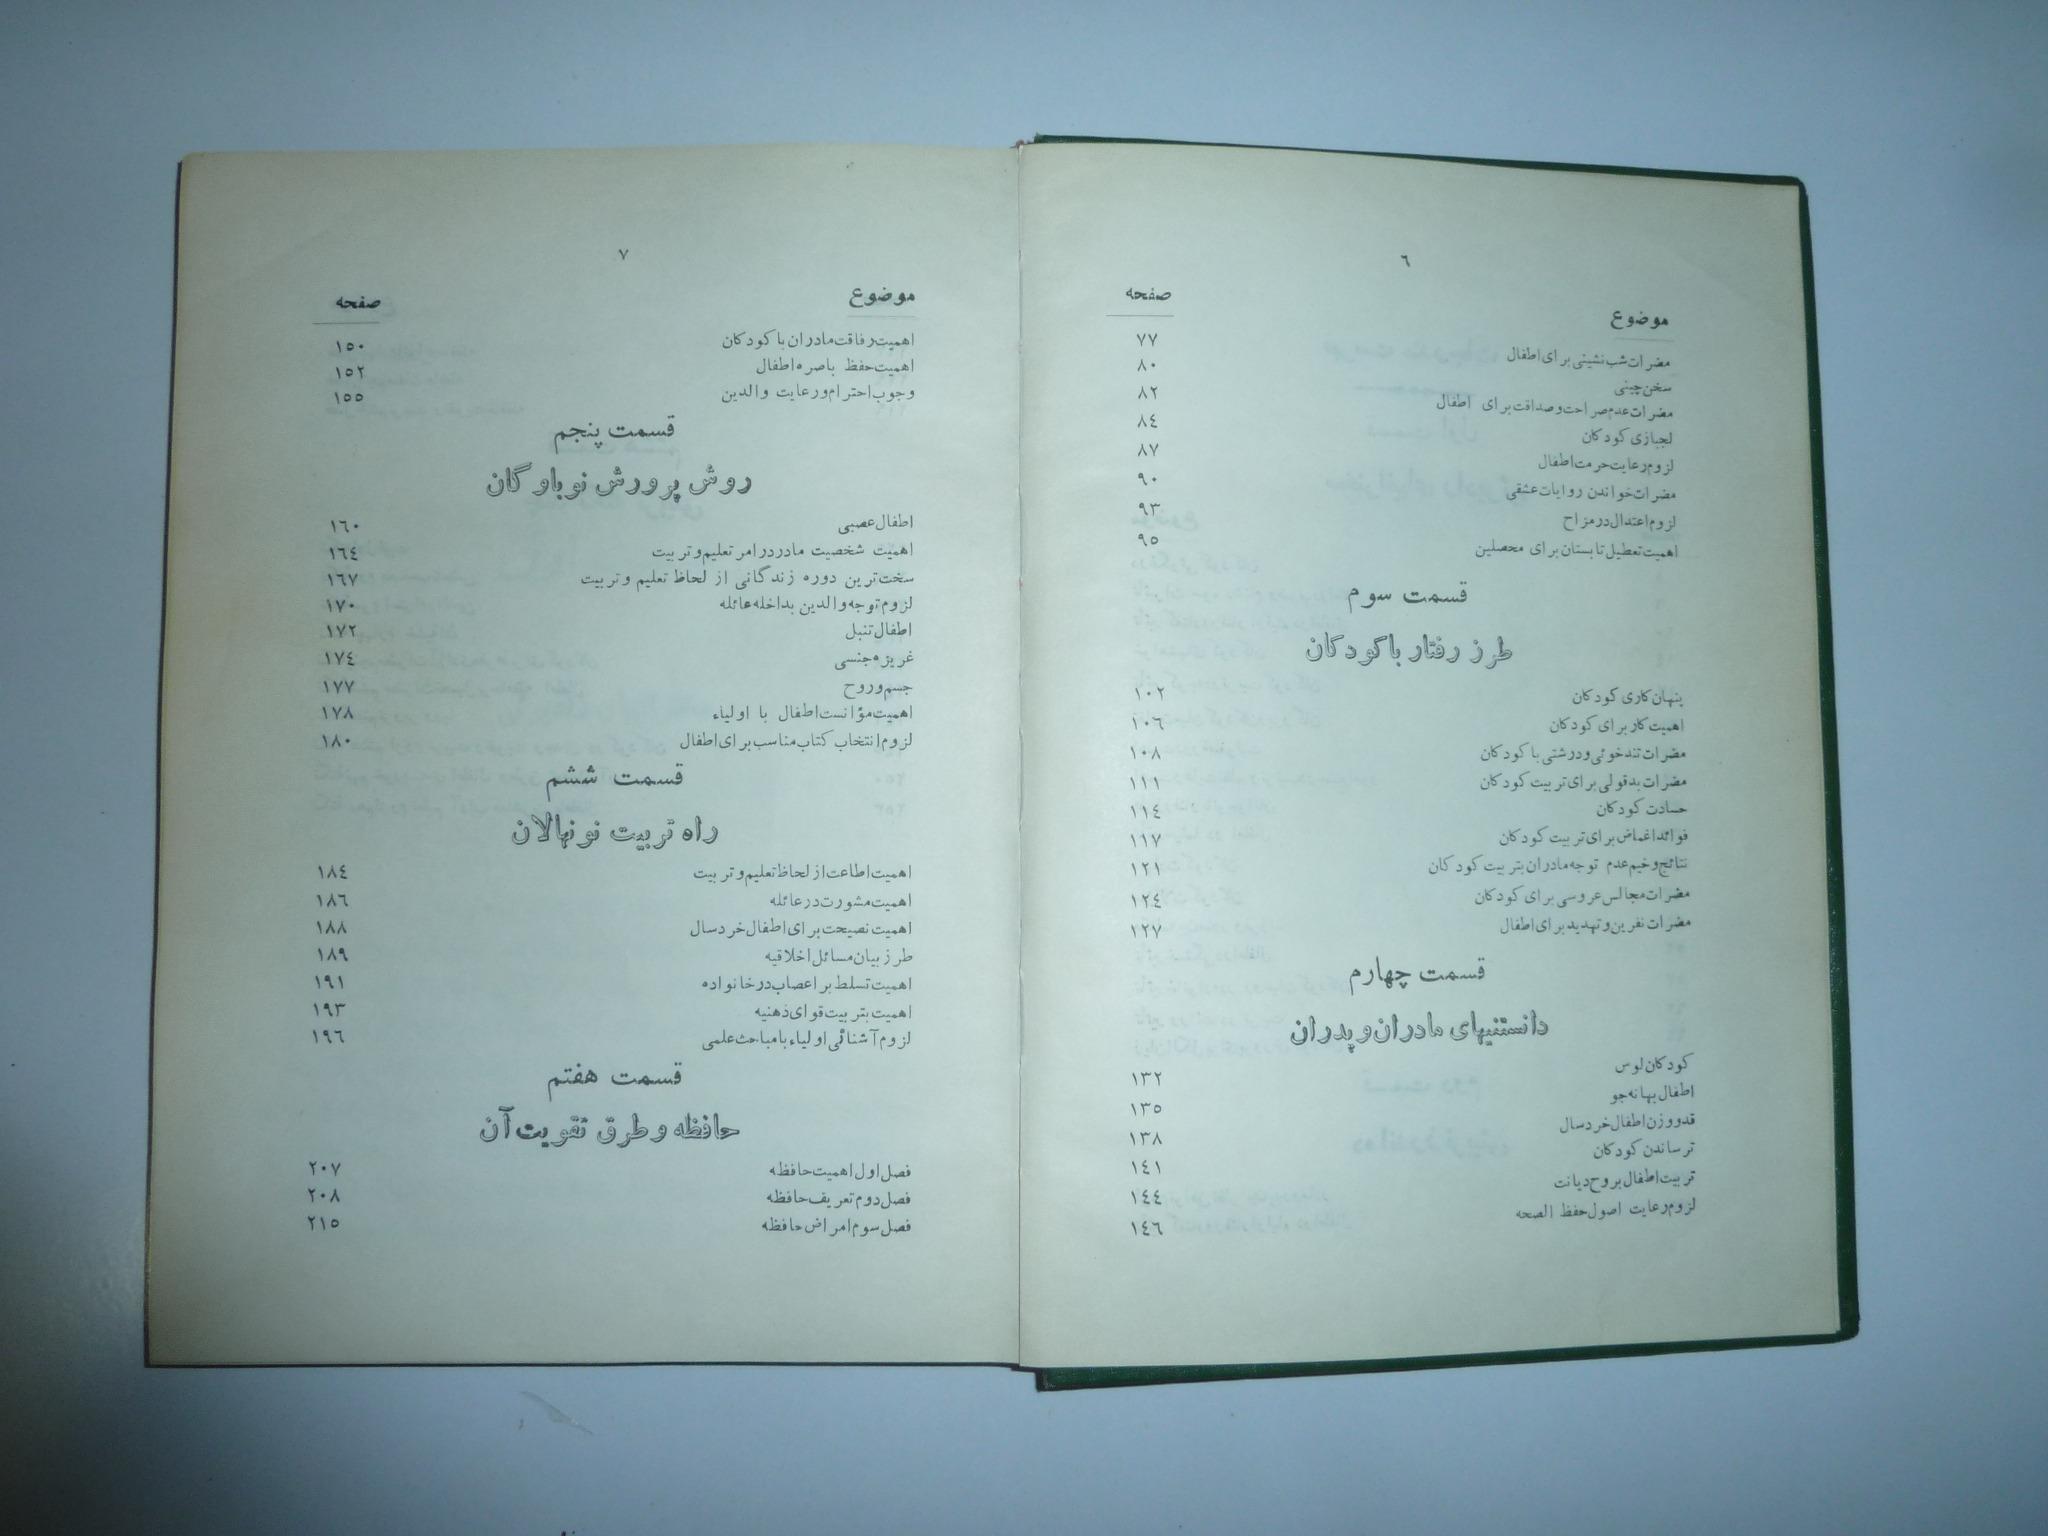 ٦
موضوع صفحه
مضرات شب نشینی برای اطفال ٧٧
سخن چینی ٨٠
مضرات عدم صراحت و صداقت برای اطفال ٨٢
لجبازی کودکان ٨٤
لزوم رعایت حرمت اطفال ٨٧
مضرات خواندن روایات عشقی ٩٠
لزوم اعتدال در مزاح ٩٣
اهمیت تعطیل تابستان برای محصلین ٩٥
قسمت سوم
طرز رفتار با کودکان
پنهان کاری کودکان ١٠٢
اهمیت کار برای کودکان ١٠٦
مضرات تندخوئی و درشتی با کودکان ١٠٨
مضرات بدقولی برای تربیت کودکان ١١١
حسادت کودکان ١١٤
فوائد اغماض برای تربیت کودکان ١١٧
نتائج وخیم عدم توجه مادران بتربیت کودکان ١٢١
مضرات مجالس عروسی برای کودکان ١٢٤
مضرات نفرین و تهدید برای اطفال ١٢٧
قسمت چهارم
دانستنیهای مادران و پدران
کودکان لوس ١٣٢
اطفال بهانه جو ١٣٥
قد و وزن اطفال خردسال ١٣٨
ترساندن کودکان ١٤١
تربیت اطفال بروح دیانت ١٤٤
لزوم رعایت اصول حفظ الصحه ١٤٦
٧
موضوع صفحه
اهمیت رفاقت مادران با کودکان ١٥٠
اهمیت حفظ باصره اطفال ١٥٢
وجوب احترام و رعایت والدین ١٥٥
قسمت پنجم
روش پرورش نوباوگان
اطفال عصبی ١٦٠
اهمیت شخصیت مادر در امر تعلیم و تربیت ١٦٤
سخت ترین دوره زندگانی از لحاظ تعلیم و تربیت ١٦٧
لزوم توجه والدین بداخله عائله ١٧٠
اطفال تنبل ١٧٢
غریزه جنسی ١٧٤
جسم و روح ١٧٧
اهمیت مؤانست اطفال با اولیاء ١٧٨
لزوم انتخاب کتاب مناسب برای اطفال ١٨٠
قسمت ششم
راه تربیت نونهالان
اهمیت اطاعت از لحاظ تعلیم و تربیت ١٨٤
اهمیت مشورت در عائله ١٨٦
اهمیت نصیحت برای اطفال خردسال ١٨٨
طرز بیان مسائل اخلاقیه ١٨٩
اهمیت تسلط بر اعصاب در خانواده ١٩١
اهمیت بتربیت قوای ذهنیه ١٩٣
لزوم آشنائی اولیاء با مباحث علمی ١٩٦
قسمت هفتم
حافظه و طرق تقویت آن
فصل اول اهمیت حافظه ٢٠٧
فصل دوم تعریف حافظه ٢٠٨
فصل سوم امراض حافظه ٢١٥